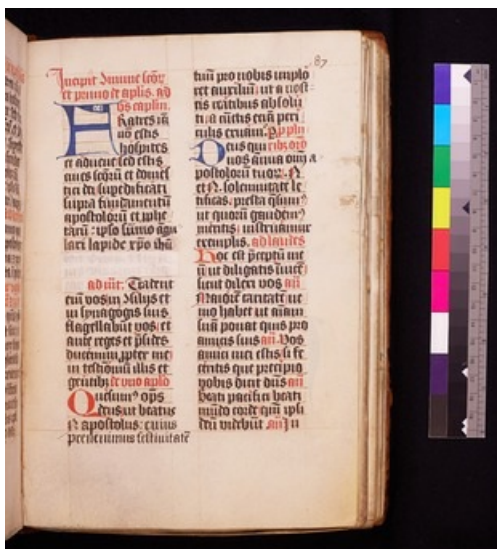 87
Incipit
et primo de aplis. ad
F
Ratres iā
nō estis
hospites
et aduene sed estis
ciues scōrū et domes
tici dei supedificati
supra fundamentū
apostolorū et ꝓphe
tarū: ipso sūmo angu
lari lapide xpō ihū
ad int. Tradent
eim vos in
in synagogis suis
flagellabūt vos et
ante reges et p̄sides
ducemini ꝓpter me
in testimoniū illis et
gentibꝫ de vno aplo
Quesumꝰ ops
deus ut beatus
N apostolus: cuius
preuenimus festiuitatē
tuam pro nobis implo
ret auxiliū: ut a nost
ris reatibus absoluti
a cūctis etiā peri
culis eruam.
Deus qui
nos annua
postolorū tuoꝝ. N
et N. solemnitate le
tificas. presta qsumꝰ
ut quorū gaudemꝰ
meritis; instruamur
exemplis. ad laudes
Hoc est p̄ceptū me
ū ut diligatis inuicē
sicut dilexi vos añ
Maiorē caritatē ne
mo habet ut animā
suā ponat quis pro
amicis suis añ Vos
amici mei estis si fe
ceritis que precipio
vobis dicit dūs añ
Beati pacifici beati
mūdo corde qm̄ ipsi
deū videbūt añ In